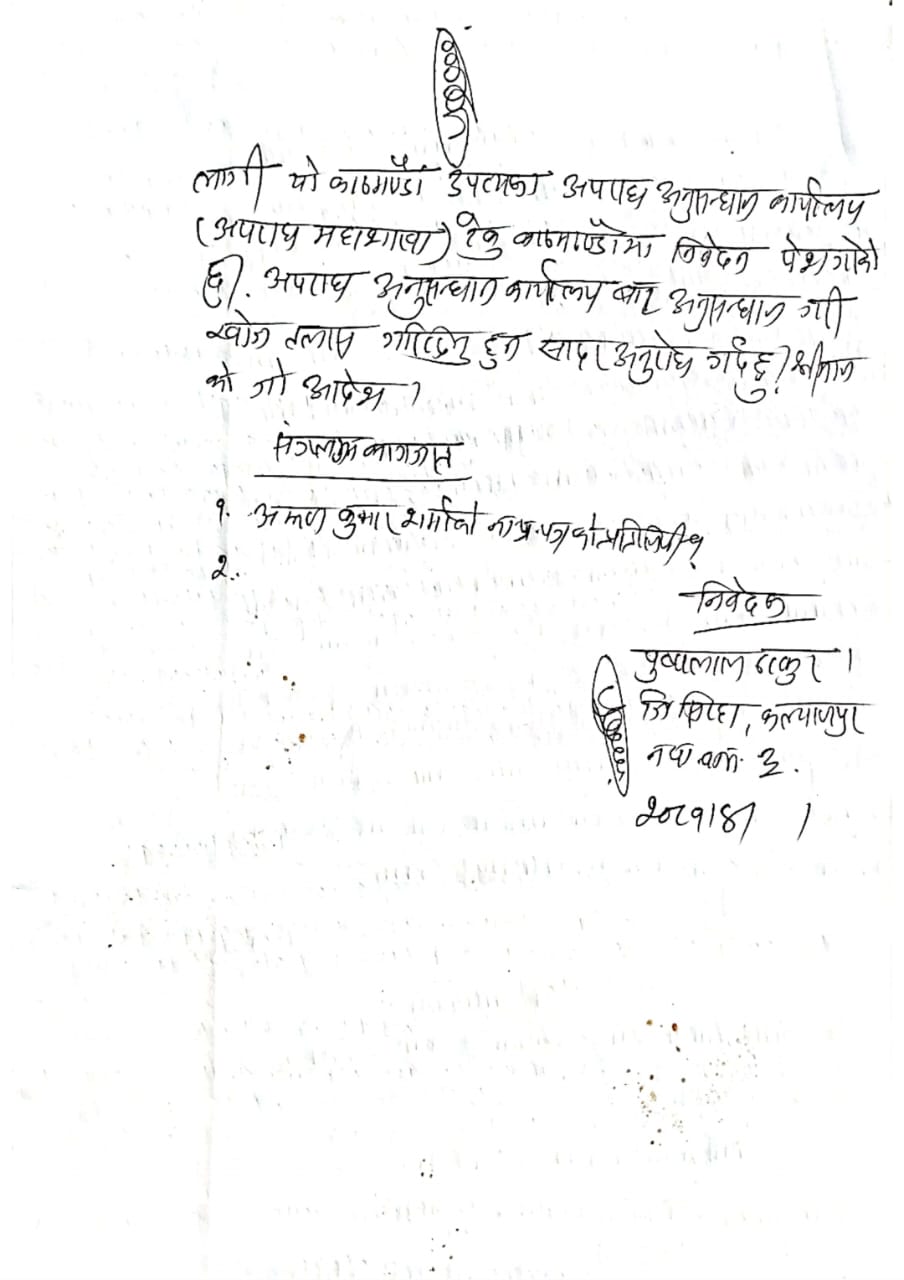 लागी यो काठमाण्डौ उपत्यका अपराध अनुसन्धान कार्यालय
(अपराध महाशाखा) टेकु काठमाण्डौमा निवेदन पेश गरेको
छु। अपराध अनुसन्धान कार्यालय बाट अनुसन्धान गरी
खोज तलास गरिदिनु हुन सादर अनुरोध गर्दछु। श्रीमान
को जो आदेश।
संगलग्न कागजात
१. अरुण कुमार शर्माको ना.प्र.पत्रको प्रतिलिपी १
२.
निवेदक
पुष्पलाल ठाकुर।
जि सिरहा, कल्याणपुर
नपा वडा नं. ३.
२०८१।४। ।